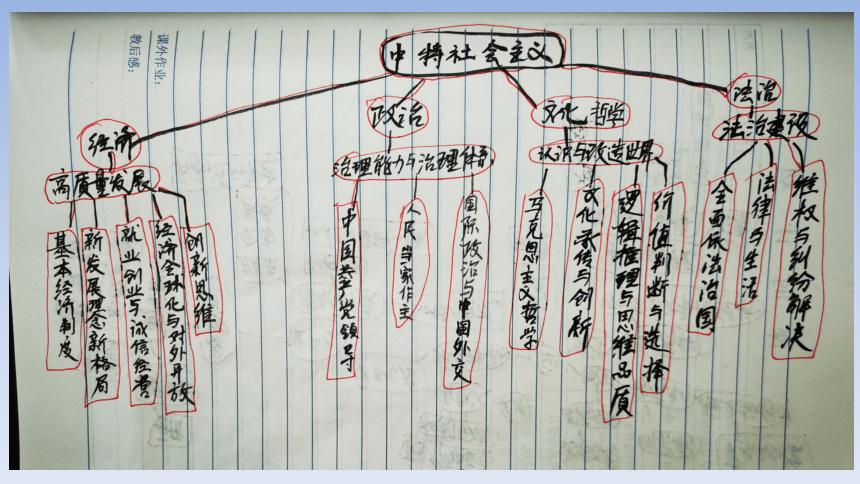 中特社会主义
经济
政治
文化 哲学
法治
高质量发展
治理能力与治理体系
认识与改造世界
法治建设
基本经济制度
新发展理念新格局
就业创业与诚信经营
经济全球化与对外开放
创新思维
中国共产党领导
人民当家作主
国际政治与中国外交
马克思主义哲学
文化承传与创新
逻辑推理与思维品质
价值判断与选择
全面依法治国
法律与生活
维权与纠纷解决
课外作业：
教后感：